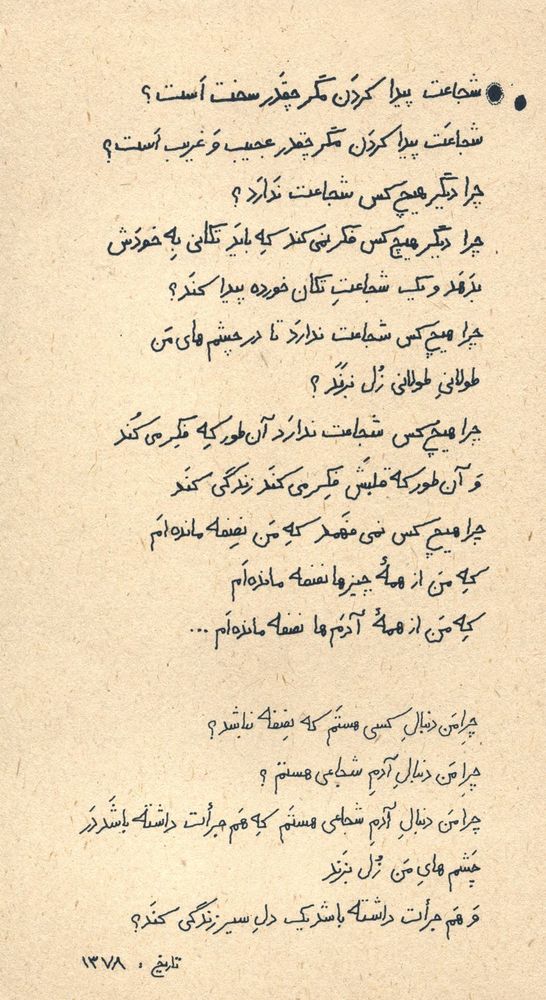 شجاعت پیدا کردَن مَگر چقَدر سخت اَست؟
شجاعَت پیدا کردَن مَگر چقدر عجیب وَ غریب اَست؟
چرا دیگَر هیچ کس شجاعت نَدارَد؟
چرا دیگر هیچ کس فکر نِمی کند کِه بایَد تکانی بِه خودَش
بدَهَد و یک شجاعتِ تکان خورده پیدا کُنَد؟
چرا هیچ کس شجاعت ندارَد تا در چشم های مَن
طولانیِ طولانی زُل بزَنَد؟
چرا هیچ کس شجاعت ندارَد آن طور کِه فِکر می کُند
وَ آن طور که قلبَش فِکر می کُنَد زندگی کُنَد
چرا هیچ کس نمی فهمَد کِه مَن نِصفه مانده اَم
کِه مَن از همهٔ چیزها نصفه مانده اَم
کِه مَن از همهٔ آدَم ها نصفه مانده اَم ...
چرا مَن دنبالِ کَسی هستَم که نِصفه نباشد؟
چرا مَن دنبالِ آدَمِ شجاعی هستم؟
چرا مَن دنبالِ آدَمِ شجاعی هستَم کِه هَم جرأت داشته باشَد دَر
چَشم هایِ مَن زُل بزَند
وَ هَم جرأت داشتَه باشَد یک دلِ سیر زندگی کنَد؟
تاریخ: ۱۳۷۸